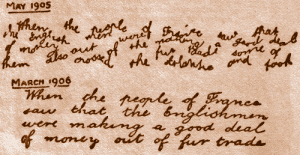 MAY 1905
When the people of France saw that
the English men were making a good deal
of money out of the fur trade some of
them also crossed the              and took
MARCH 1906
When the people of France
saw that the Englishmen
were making a good deal
of money out of fur trade